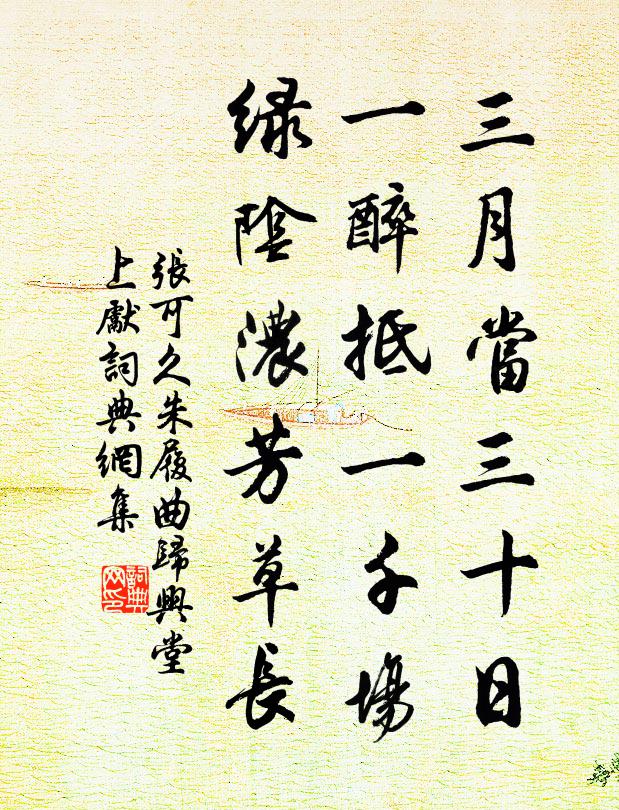 三月當三十日
一醉抵一千場
緑陰濃芳草長
張可久朱履曲歸興堂
上獻詞典網集
詞典
网印